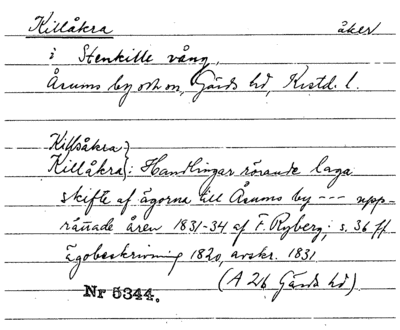 Killåkra åker
i Stenkille vång,
Årums by och sn, Gärds hd, Krstd. l.
Killsåkra}
Killåkra}: Handlingar rörande laga
skifte af ägorna till Årums by --- upp-
rättade åren 1831-34 af F. Ryberg; s. 36 ff
ägobeskrivning 1820, avskr. 1831
(A 26 Gärds hd)
Nr 5344.